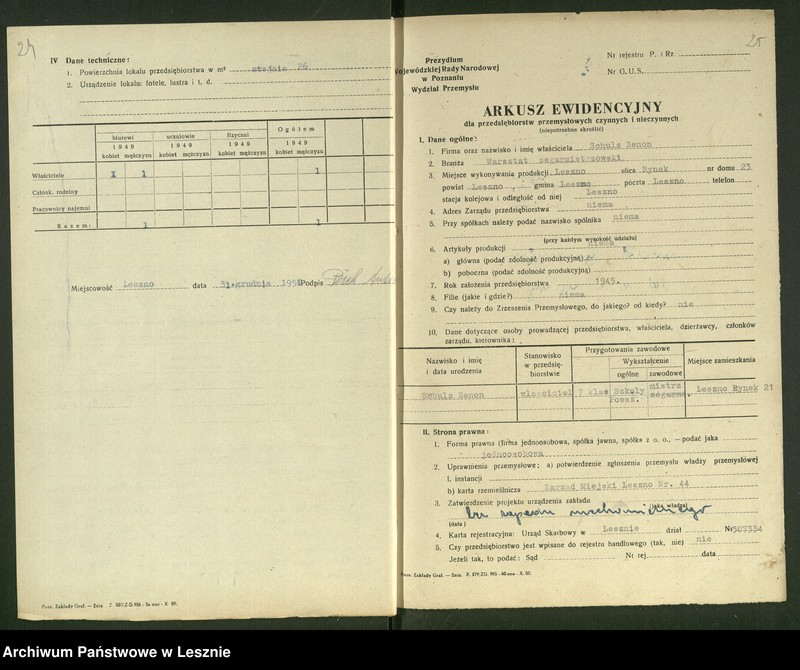 24
IV Dane techniczne:
1. Powierzchnia lokalu przedsiębiorstwa w m² 26
2. Urządzenie lokalu: fotele, lustra i t. d.
biurowi uczniowie fizyczni Ogółem
1949 1949 1949 1949
kobiet mężczyzn kobiet mężczyzn kobiet mężczyzn kobiet mężczyzn
Właściciele 1 1
Członk. rodziny
Pracownicy najemni
Razem: 1 1
Miejscowość Leszno data 31.grudnia Podpis
Pozn. Zakłady Graf. — Dzia
25
Prezydium
Wojewódzkiej Rady Narodowej
w Poznaniu
Wydział Przemysłu
Nr rejestru P. i Rz.
Nr G.U.S.
ARKUSZ EWIDENCYJNY
dla przedsiębiorstw przemysłowych czynnych i nieczynnych
(niepotrzebne skreślić)
I. Dane ogólne:
1. Firma oraz nazwisko i imię właściciela Schulz Zenon
2. Branża Warsztat zegarmistrzowski
3. Miejsce wykonywania produkcji Leszno ulica Rynek nr domu 23
powiat Leszno gmina Leszno poczta Leszno telefon
stacja kolejowa i odległość od niej Leszno
4. Adres Zarządu przedsiębiorstwa niema
5. Przy spółkach należy podać nazwisko spólnika niema
(przy każdym wysokość udziału)
6. Artykuły produkcji niema
a) główna (podać zdolność produkcyjną)
b) poboczna (podać zdolność produkcyjną)
7. Rok założenia przedsiębiorstwa 1945.
8. Filie (jakie i gdzie?) niema
9. Czy należy do Zrzeszenia Przemysłowego, do jakiego? od kiedy? nie
10. Dane dotyczące osoby prowadzącej przedsiębiorstwa, właściciela, dzierżawcy, członków
zarządu, kierownika:
Nazwisko i imię i data urodzenia
Stanowisko w przedsiębiorstwie
Przygotowania zawodowe
Wykształcenie
ogólne zawodowe
Miejsce zamieszkania
Schulz Zenon właściciel 7 klas Szkoły powsz. mistrz zegarm. Leszno Rynek 21
II. Strona prawna:
1. Forma prawna (firma jednoosobowa, spółka jawna, spółka z o. o., — podać jaka
jednoosobowa
2. Uprawnienia przemysłowe; a) potwierdzenie zgłoszenia przemysłu władzy przemysłowej
I. instancji
b) karta rzemieślnicza Zarząd Miejski Leszno Nr. 44
3. Zatwierdzenie projektu urządzenia zakładu
(jaka władza)
bez napędu mechanicznego
(data)
4. Karta rejestracyjna: Urząd Skarbowy w Lesznie dział Nr 307334
5. Czy przedsiębiorstwo jest wpisane do rejestru handlowego (tak, nie) nie
Jeżeli tak, to podać: Sąd Nr rej. data
Pozn. Zakłady Graf. — Dzia
Archiwum Państwowe w Lesznie